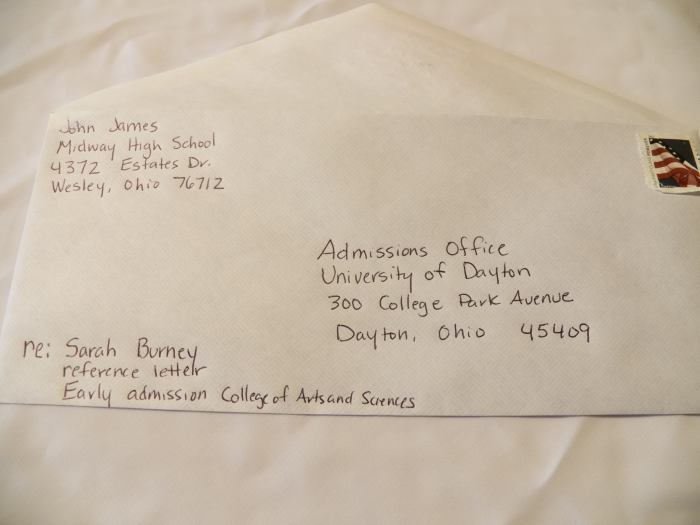 John James
Midway High School
4372 Estates Dr.
Wesley, Ohio 76712
Admissions Office
University of Dayton
300 College Park Avenue
Dayton, Ohio 45409
re: Sarah Burney
reference letter
Early admission College of Arts and Sciences